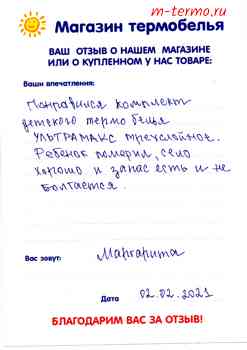 m-termo.ru
Магазин термобелья
ВАШ ОТЗЫВ О НАШЕМ МАГАЗИНЕ
ИЛИ О КУПЛЕННОМ У НАС ТОВАРЕ:
Ваши впечатления:
Понравился комплект
детского термобелья
УЛЬТРАМАКС трехслойное.
Ребенок померил, село
хорошо и запас есть и не
болтается.
Вас зовут: Маргарита
Дата 02.02.2021
БЛАГОДАРИМ ВАС ЗА ОТЗЫВ!